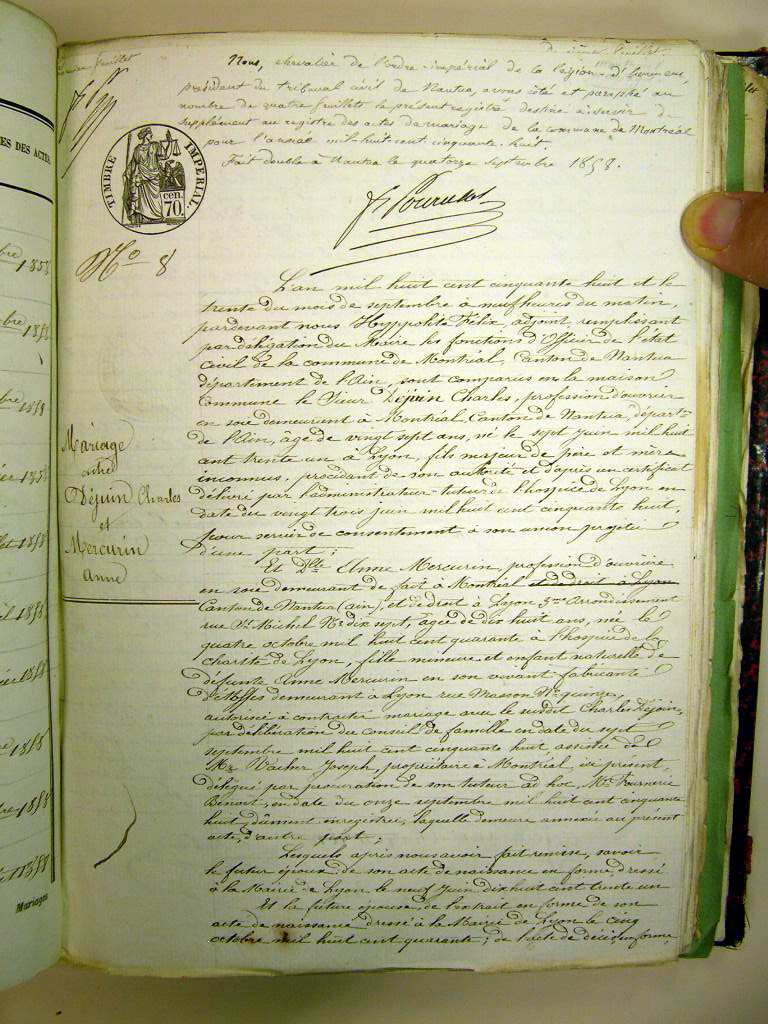 Nous, chevalier de l'ordre impérial de la légion d'honneur,
président du tribunal civil de Nantua, avons coté et paraphé au
nombre de quatre feuillets le présent registre destiné à servir de
supplément au registre des actes de mariage de la commune de Montréal
pour l'année mil huit cent cinquante huit.
Fait double à Nantua le quatorze septembre 1858.
TIMBRE IMPERIAL
cen.
70.
No 8
L'an mil huit cent cinquante huit et le
trente du mois de septembre à neuf heures du matin,
pardevant nous Hyppolite Félix, adjoint, remplissant
par délégation du Maire les fonctions d'Officier de l'état
civil de la commune de Montréal, canton de Nantua
département de l'Ain, sont comparus en la maison
Commune le Sieur Déjoin Charles, profession d'ouvrier
en soie demeurant à Montréal, Canton de Nantua, départ.t
de l'Ain, âgé de vingt sept ans, né le sept juin mil huit
cent trente un à Lyon, fils majeur de père et mère
inconnus, procédant de son autorité et d'après un certificat
délivré par l'administrateur-tuteur de l'hospice de Lyon en
date du vingt trois juin mil huit cent cinquante huit,
pour servir de consentement à son union projetée
d'une part;
Mariage
entre
Déjoin Charles
et
Mercurin
Anne
Et Dlle Anne Mercurin, profession d'ouvrière
en soie demeurant de fait à Montréal et de droit à Lyon
Canton de Nantua (ain), et de droit à Lyon 3me Arrondissement
rue St Michel No dix sept, âgée de dix huit ans, née le
quatre octobre mil huit cent quarante à l'hospice de la
charité de Lyon, fille mineure et enfant naturelle de
défunte Anne Mercurin en son vivant fabricante
d'étoffes demeurant à Lyon rue Masson No quinze,
autorisée à contracter mariage avec le susdit Charles Déjoin,
par délibération du Conseil de famille en date du sept
septembre mil huit cent cinquante huit assistée de
Mr Vacher Joseph, propriétaire à Montréal, ici présent,
délégué par procuration de son tuteur ad hoc, Mr
Benoit, en date du onze septembre mil huit cent cinquante
huit, dûment enregistrée, laquelle demeure annexée au présent
acte, d'autre part;
Lesquels après nous avoir fait remise, savoir
le futur époux, de son acte de naissance en forme, dressé
à la Mairie de Lyon le neuf Juin dix huit cent trente un
Et la future épouse, de l'extrait en forme de son
acte de naissance dressé à la Mairie de Lyon le cinq
octobre mil huit cent quarante; de l'acte de décès en forme,
ES DES ACTES
1858
1858
1858
1858
1858
1858
1858
1858
1858
1858
Mariages